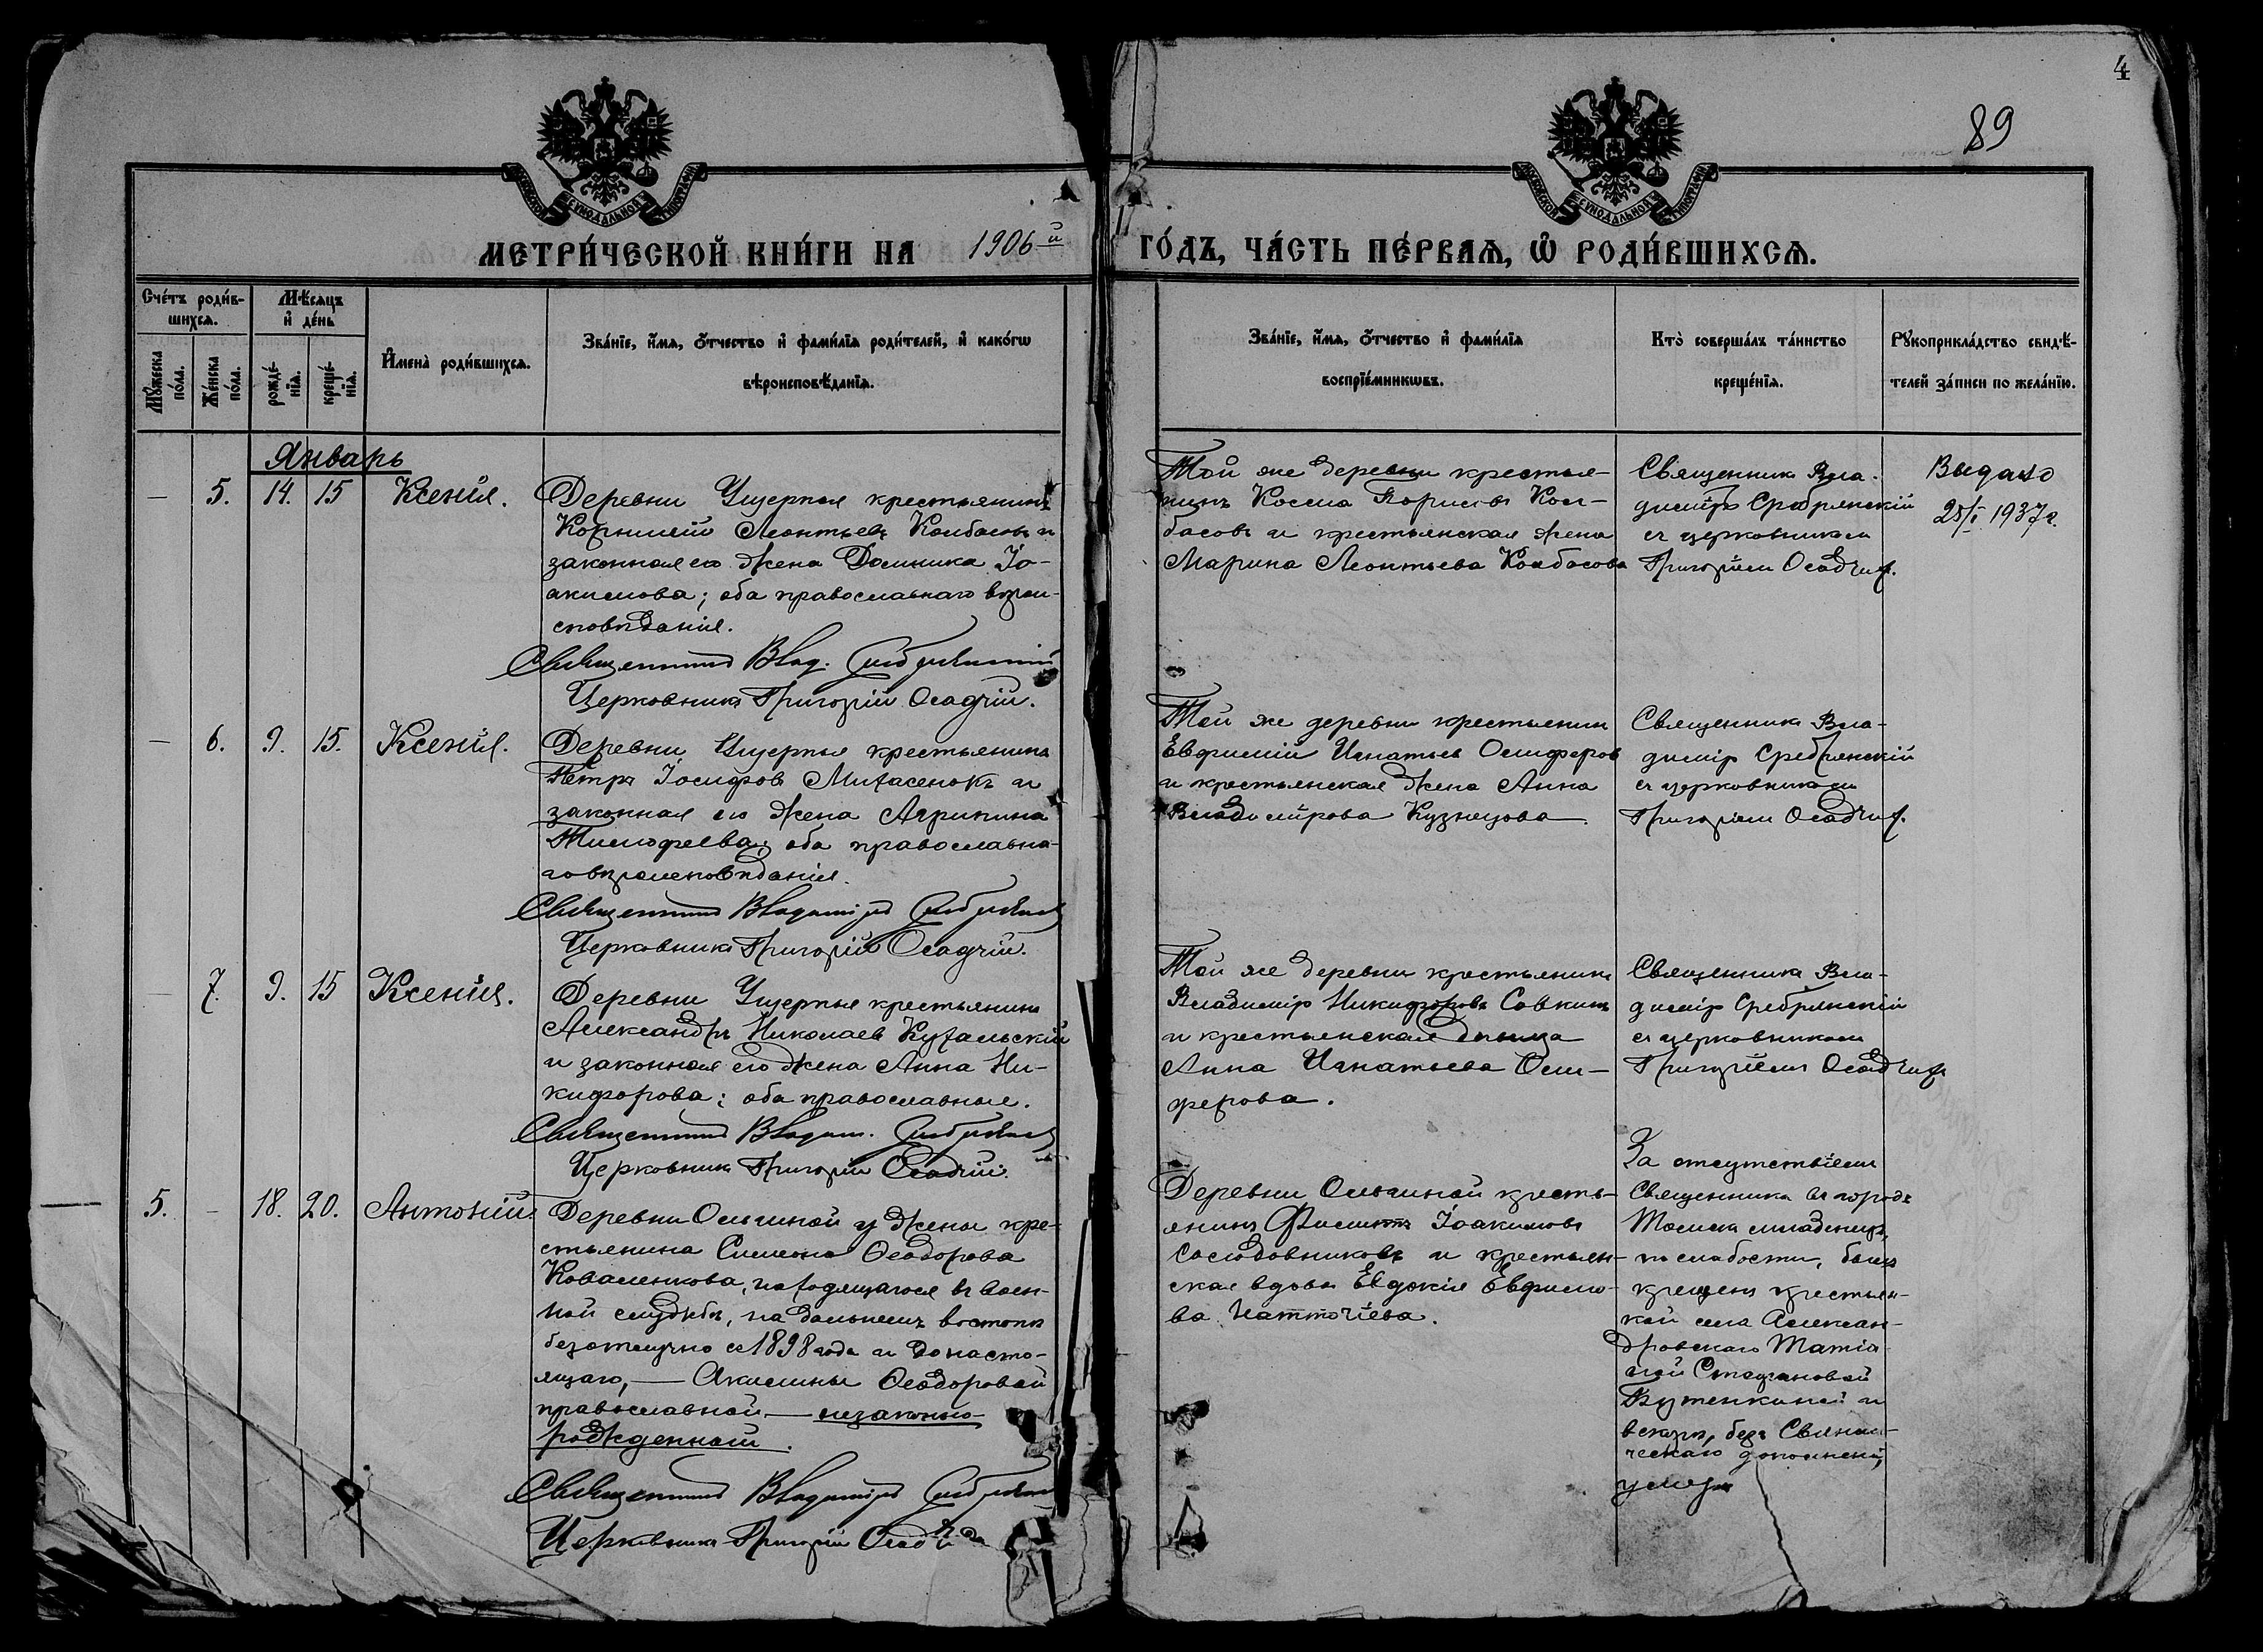 4
89
МОСКОВСКОЙ СѴНОДАЛЬНОЙ ТИПОГРАФІИ
МОСКОВСКОЙ СѴНОДАЛЬНОЙ ТИПОГРАФІИ
МЕТРИ́ЧЕСКОЙ КНИ́ГИ НА 1906й ГО́ДЪ, ЧА́СТЬ ПЕ́РВАѦ, Ѽ РОДИ́ВШИХСѦ.
Сче́тъ роди́в-
шихсѧ.
Мꙋ́жеска
по́ла.
Же́нска
по́ла.
Мѣ́сѧцъ
и҆ де́нь
рожде́-
нїѧ.
креще́-
нїѧ.
И҆мена̀ роди́вшихсѧ.
Зва́нїе, и҆́мѧ, ѻ҆́тчество и҆ фами́лїѧ роди́телей, и҆ како́гѡ
вѣроисповѣ́данїѧ.
Зва́нїе, и҆́мѧ, ѻ҆́тчество и҆ фами́лїѧ
воспрїе́мникѡвъ.
Кто̀ соверша́лъ та́инство
креще́нїѧ.
Рꙋкоприкла́дство свидѣ́-
телей за́писи по жела́нїю.
Январь
— 5. 14. 15 Ксенія.
Деревни Ущерпья крестьянинъ
Корнилій Леонтьевъ Колбасовъ и
законная его жена Домника Іо-
акимова; оба православнаго вѣрои-
сповѣданія.
Священникъ Влад. Сребрянскій
Церковникъ Григорій Осадчій.
Той же деревни крестья-
нинъ Косма Борисовъ Кол-
басовъ и крестьянская жена
Марина Леонтьева Колбасова
Священникъ Вла-
диміръ Сребрянскій
съ церковникомъ
Григоріем Осадчим.
Выдано
25/I 1937г.
— 6. 9. 15. Ксенія.
Деревни Ущерпья крестьянинъ
Петръ Іосифовъ Михасенокъ и
законная его жена Агрипина
Тимофеева; оба православна-
го вѣроисповѣданія.
Священникъ Владиміръ Сребрянскій
Церковникъ Григорій Осадчій.
Той же деревни крестьянин
Евфимій Игнатьев Олиферов
и крестьянская жена Анна
Владимірова Кузнецова
Священникъ Вла-
диміръ Сребрянскій
съ церковникомъ
Григоріем Осадчим.
— 7. 9. 15 Ксенія.
Деревни Ущерпья крестьянинъ
Александръ Николаев Кухальскій
и законная его жена Анна Ни-
кифорова; оба православные.
Священникъ Владим. Сребрянскій
Церковникъ Григорій Осадчій.
Той же деревни крестьянинъ
Владиміръ Никифоровъ Савкинъ
и крестьянская дѣвица
Анна Игнатьева Оли-
ферова.
Священникъ Вла-
диміръ Сребрянскій
съ церковникомъ
Григоріем Осадчим
5. — 18. 20. Антоній.
Деревни Ольгиной у жены кре-
стьянина Симеона Ѳеодорова
Коваленкова, находящагося въ воен-
ной службѣ, на дальнемъ востокѣ
безотлучно съ 1898 года и до насто-
ящаго, — Акилины Ѳеодоровой
православной — незаконно-
рожденный.
Священникъ Владиміръ Сребрянскій
Церковникъ Григорій Осадчій
Деревни Ольгиной кресть-
янинъ Филиппъ Іоакимовъ
Солодовниковъ и крестьян-
ская вдова Евдокія Евфимо-
ва
За отсутствіем
Священника въ городъ
Томскъ младенецъ,
по слабости, былъ
крещенъ крестьян-
кой села Алексан-
дровскаго Татіа-
ной Стефановой
Кутенкиной и
вскорѣ, безъ Священни-
ческаго дополненія,
умеръ